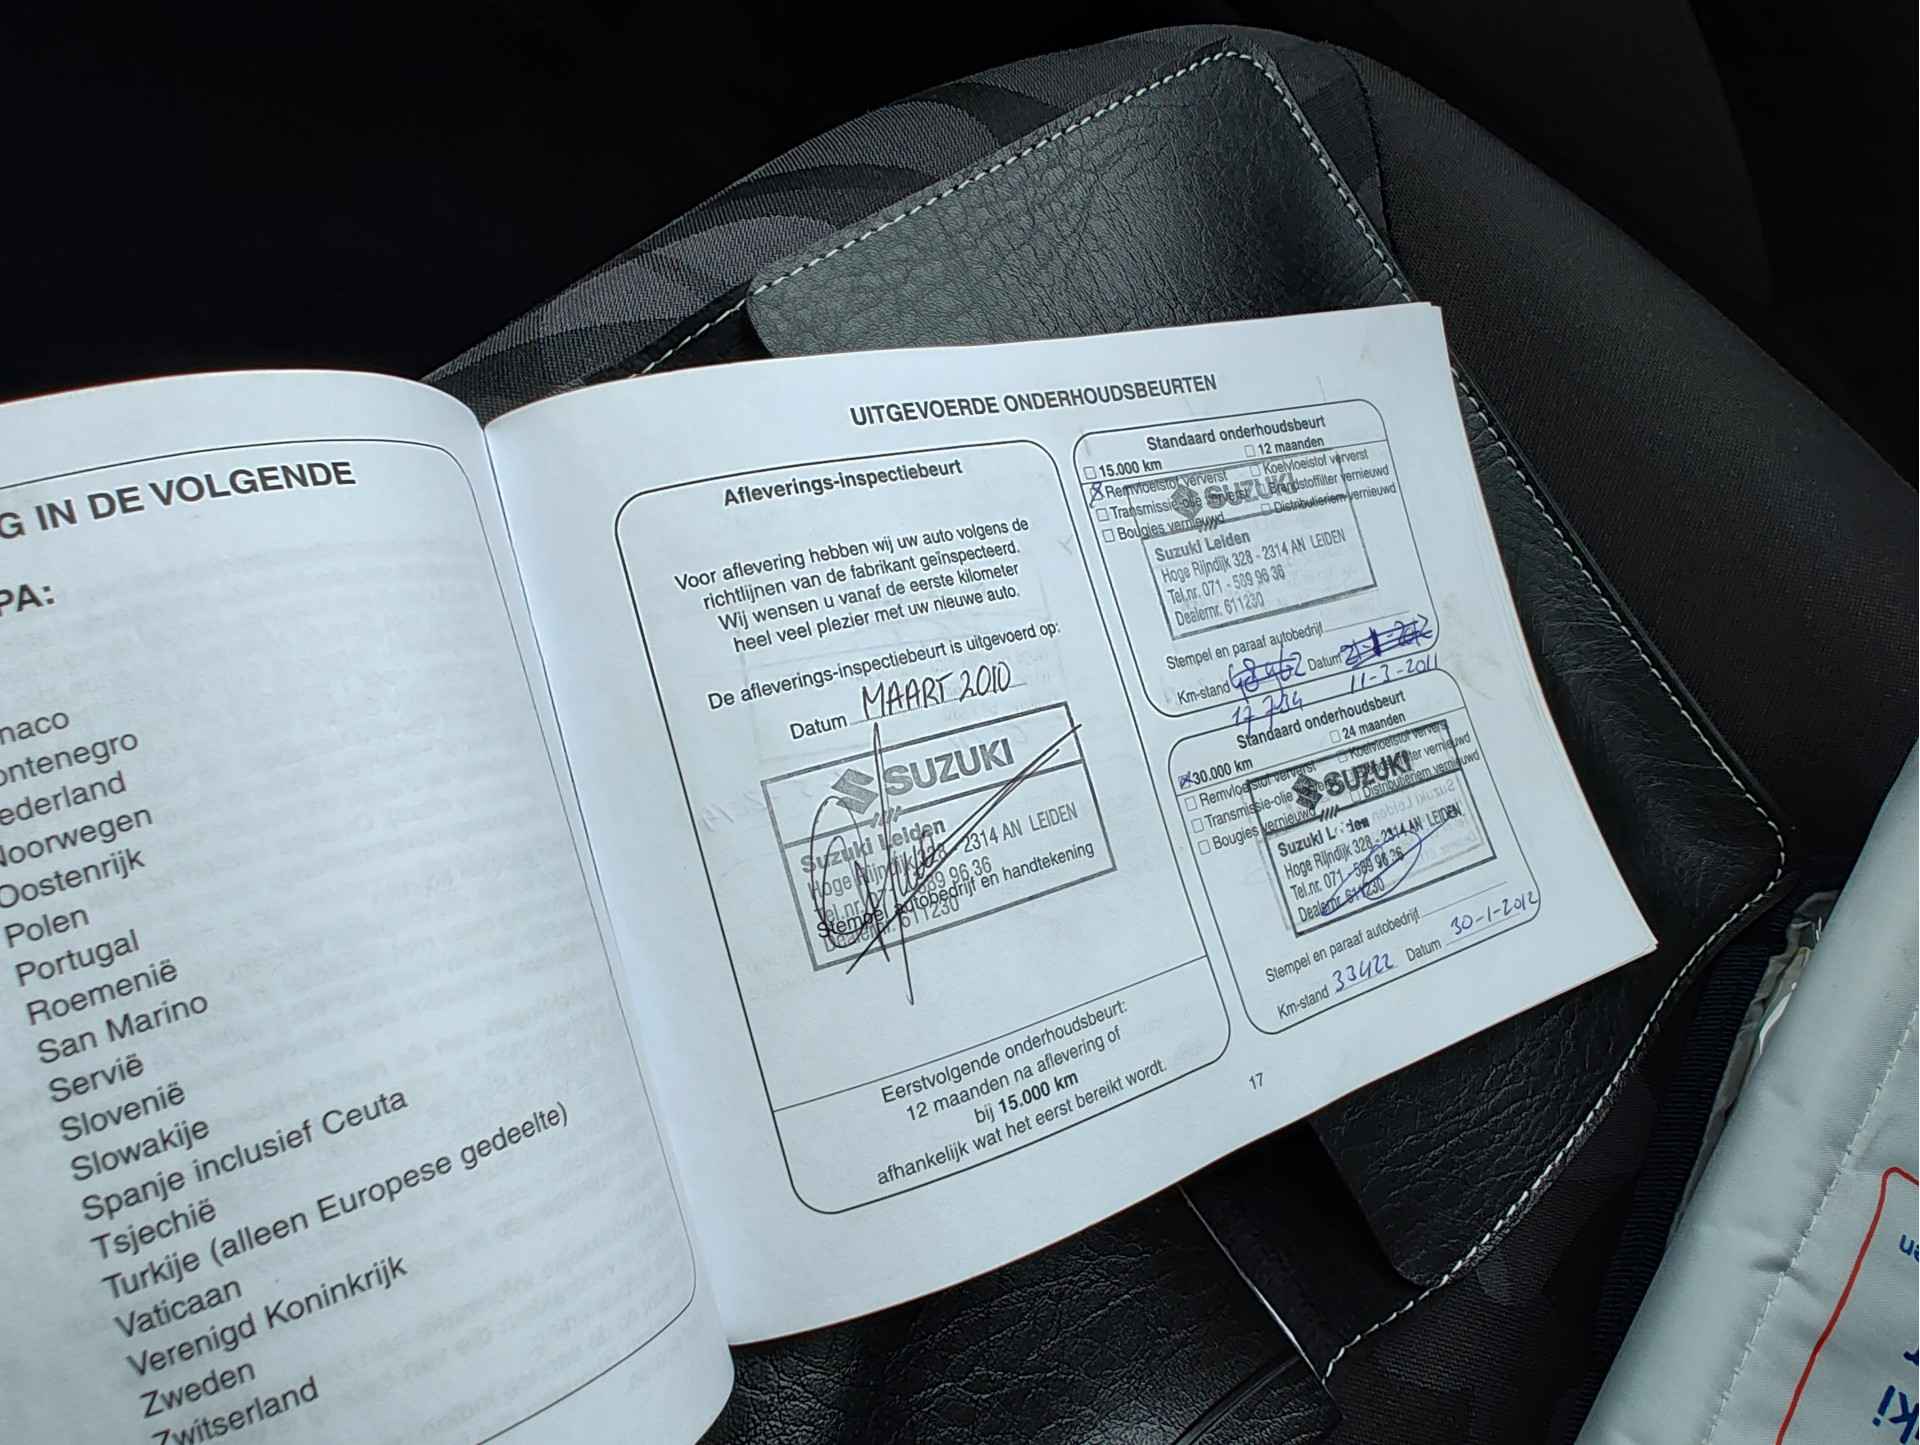 G IN DE VOLGENDE
PA:
naco
ontenegro
ederland
Noorwegen
Oostenrijk
Polen
Portugal
Roemenië
San Marino
Servië
Slovenië
Slowakije
Spanje inclusief Ceuta
Tsjechië
Turkije (alleen Europese gedeelte)
Vaticaan
Verenigd Koninkrijk
Zweden
Zwitserland
UITGEVOERDE ONDERHOUDSBEURTEN
Afleverings-inspectiebeurt
Voor aflevering hebben wij uw auto volgens de
richtlijnen van de fabrikant geïnspecteerd.
Wij wensen u vanaf de eerste kilometer
heel veel plezier met uw nieuwe auto.
De afleverings-inspectiebeurt is uitgevoerd op:
Datum MAART 2010
SUZUKI
Suzuki Leiden
Hoge Rijndijk 328 - 2314 AN LEIDEN
Tel.nr. 071 - 589 96 36
Stempel autobedrijf en handtekening
Dealernr. 611230
Eerstvolgende onderhoudsbeurt:
12 maanden na aflevering of
bij 15.000 km
afhankelijk wat het eerst bereikt wordt.
Standaard onderhoudsbeurt
15.000 km 12 maanden
Remvloeistof ververst Koelvloeistof ververst
Transmissie-olie ververst Brandstoffilter vernieuwd
Bougies vernieuwd Distributieriem vernieuwd
SUZUKI
Suzuki Leiden
Hoge Rijndijk 328 - 2314 AN LEIDEN
Tel.nr. 071 - 589 96 36
Dealernr. 611230
Stempel en paraaf autobedrijf
Km-stand Datum
17 734 11-3-2011
Standaard onderhoudsbeurt
30.000 km 24 maanden
Remvloeistof ververst Koelvloeistof ververst
Transmissie-olie ververst Brandstoffilter vernieuwd
Bougies vernieuwd Distributieriem vernieuwd
SUZUKI
Suzuki Leiden
Hoge Rijndijk 328 - 2314 AN LEIDEN
Tel.nr. 071 - 589 96 36
Dealernr. 611230
Stempel en paraaf autobedrijf
Km-stand 33422 Datum 30-1-2012
17